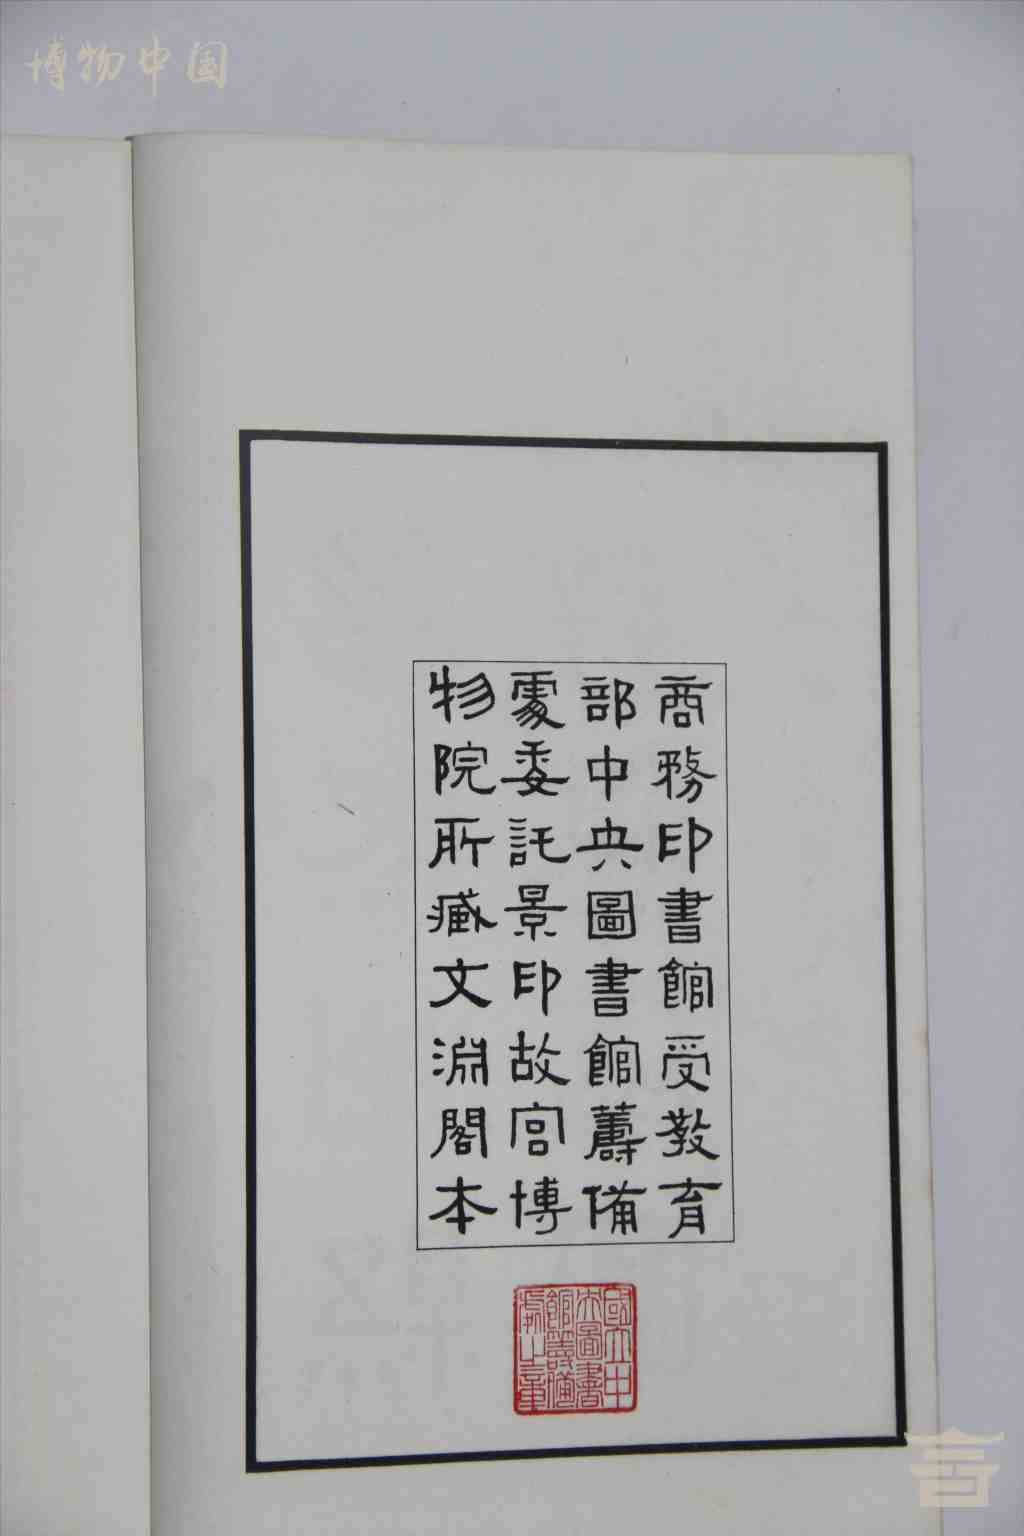 博物中国
商務印書館受教育
部中央圖書館籌備
處委託景印故宮博
物院所藏文淵閣本
國立中
央圖書
館籌備
處之章